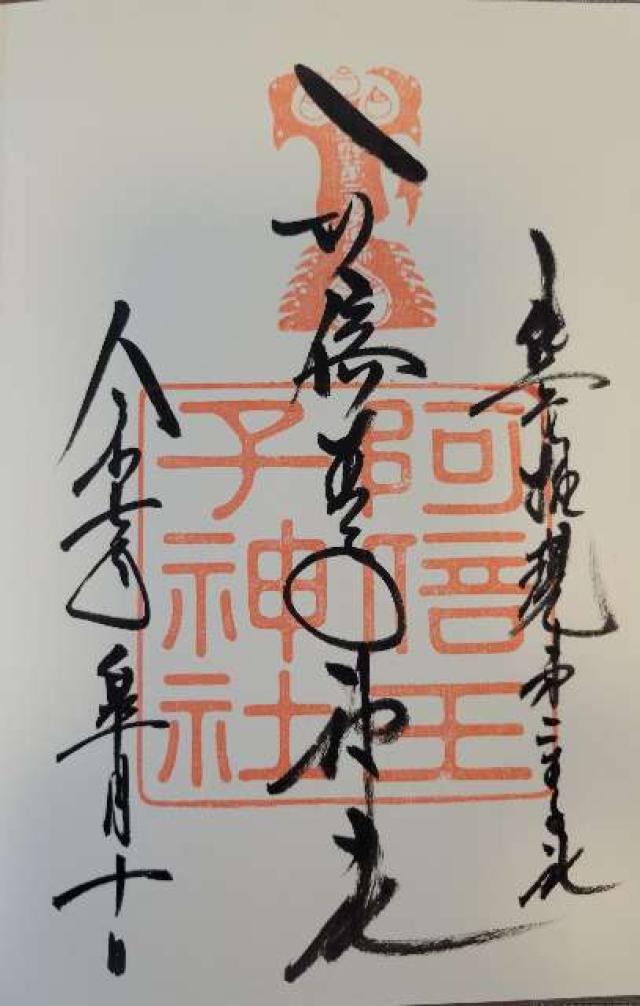 権現第二王子社
阿倍王子神社
令和七年皐月十日
阿倍王
子神社